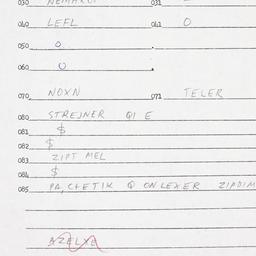 030 NEMARUI 031
040 LEFL 041 O
050 O
060 U
070 NOXN 071 TELER
080 STREJNER QI E
081 $
082 $
083 ZIPT MEL
084 $
085 PA, CHETIK Q ONLEXER ZIPDIM
AZELXE